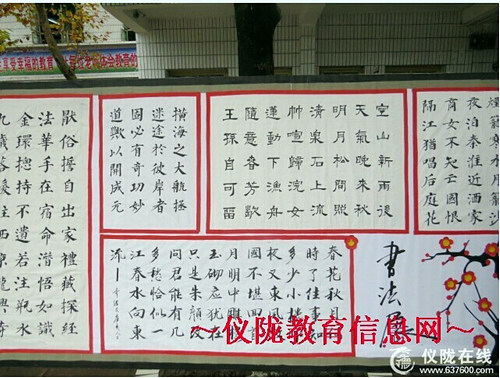 享受幸福的教育
体会教育
夜泊秦淮近酒家
商女不知亡國恨
隔江猶唱后庭花
空山新雨後
天氣晚來秋
明月松間照
清泉石上流
竹喧歸浣女
蓮動下漁舟
隨意春芳歇
王孫自可留
橫海之大航拯
迷途於彼岸者
固必有奇功妙
道歟以開成元
厭俗誓自出家禮藏探經
法華手在宿命潛悟如識
春花秋月何
時了往事知
多少小樓昨
夜又東風故
國不堪回首
月明中雕欄
玉砌應猶在
只是朱顏改
問君能有几
多愁恰似一
江春水向東
流
书法展
～仪陇教育信息网～
仪陇在线
www.637600.com